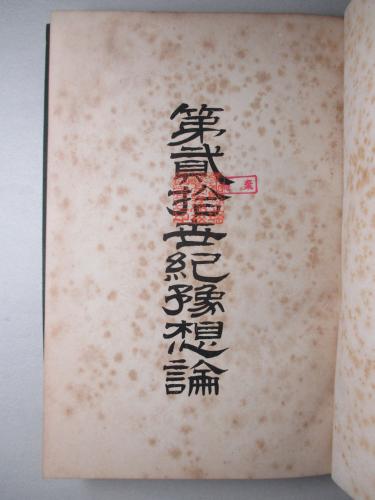 第貳拾世紀豫想論